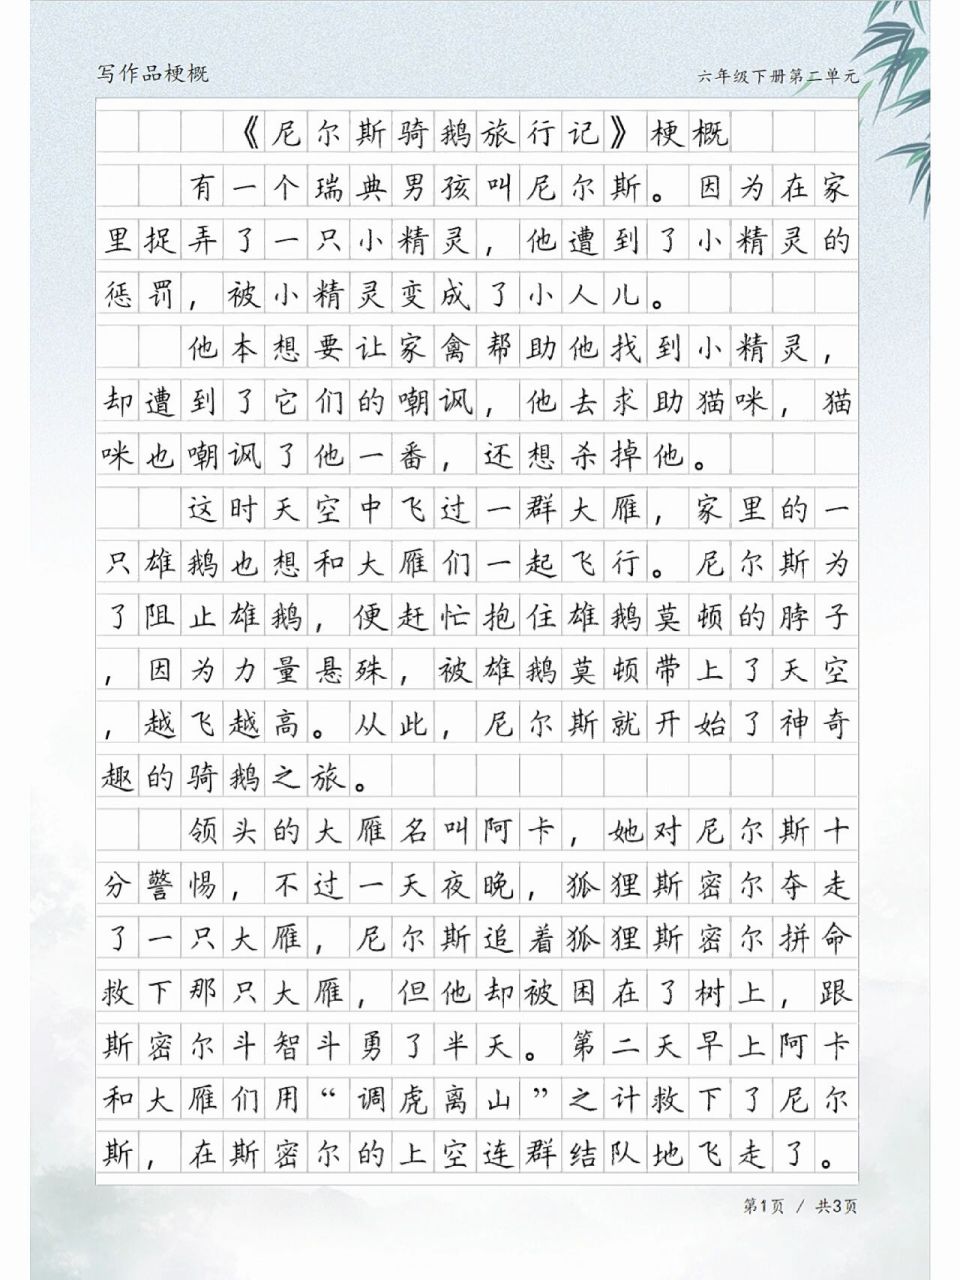 写作品梗概
六年级下册第二单元
《尼尔斯骑鹅旅行记》梗概
有一个瑞典男孩叫尼尔斯。因为在家
里捉弄了一只小精灵，他遭到了小精灵的
惩罚，被小精灵变成了小人儿。
他本想要让家禽帮助他找到小精灵，
却遭到了它们的嘲讽，他去求助猫咪，猫
咪也嘲讽了他一番，还想杀掉他。
这时天空中飞过一群大雁，家里的一
只雄鹅也想和大雁们一起飞行。尼尔斯为
了阻止雄鹅，便赶忙抱住雄鹅莫顿的脖子
，因为力量悬殊，被雄鹅莫顿带上了天空
，越飞越高。从此，尼尔斯就开始了神奇
趣的骑鹅之旅。
领头的大雁名叫阿卡，她对尼尔斯十
分警惕，不过一天夜晚，狐狸斯密尔夺走
了一只大雁，尼尔斯追着狐狸斯密尔拼命
救下那只大雁，但他却被困在了树上，跟
斯密尔斗智斗勇了半天。第二天早上阿卡
和大雁们用“调虎离山”之计救下了尼尔
斯，在斯密尔的上空连群结队地飞走了。
第1页 / 共3页